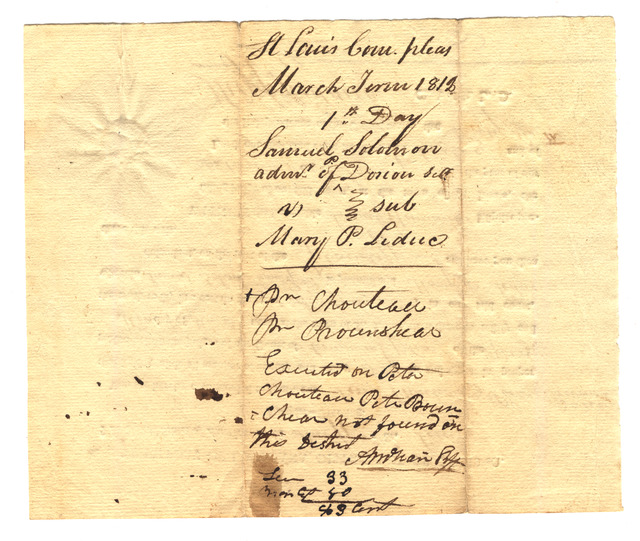 St Louis Com. pleas
March Term 1812
1st Day
Samuel Solomon
admr. of Dorion
v) sub
Mary P. Leduc
Pr Chouteau
Pr
Executed on Peter
Chouteau Pete Boun
= Chear not found in
this District
33
80
Cent